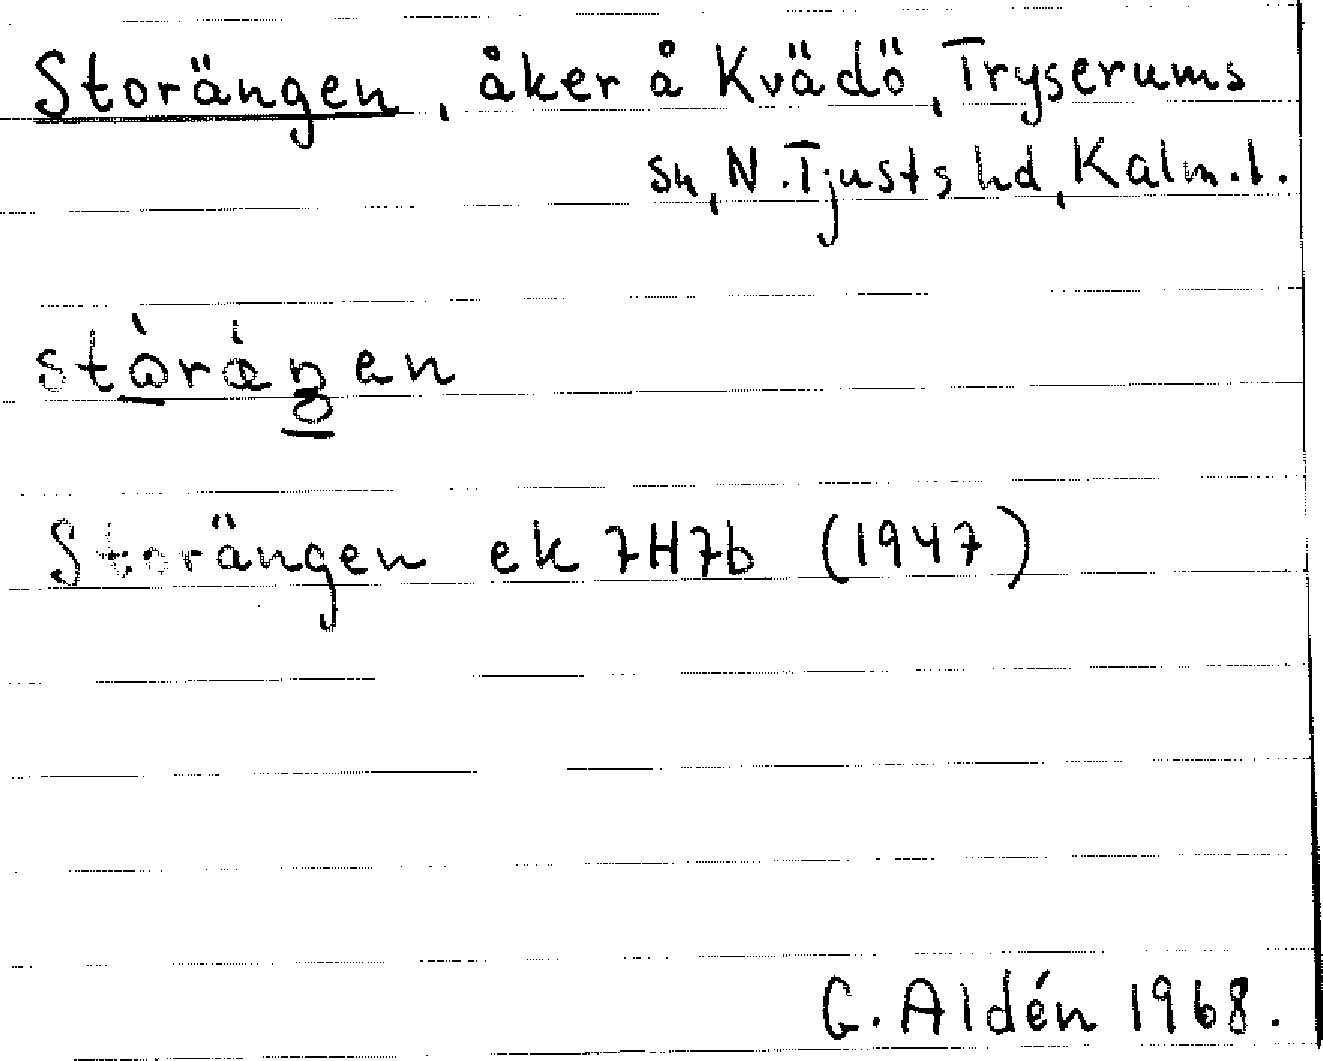 Storängen, åker å Kvädö, Tryserums
sn, N. Tjusts hd, Kalm. l.
Storängen ek 7H7b (1947)
G. Aldén 1968.